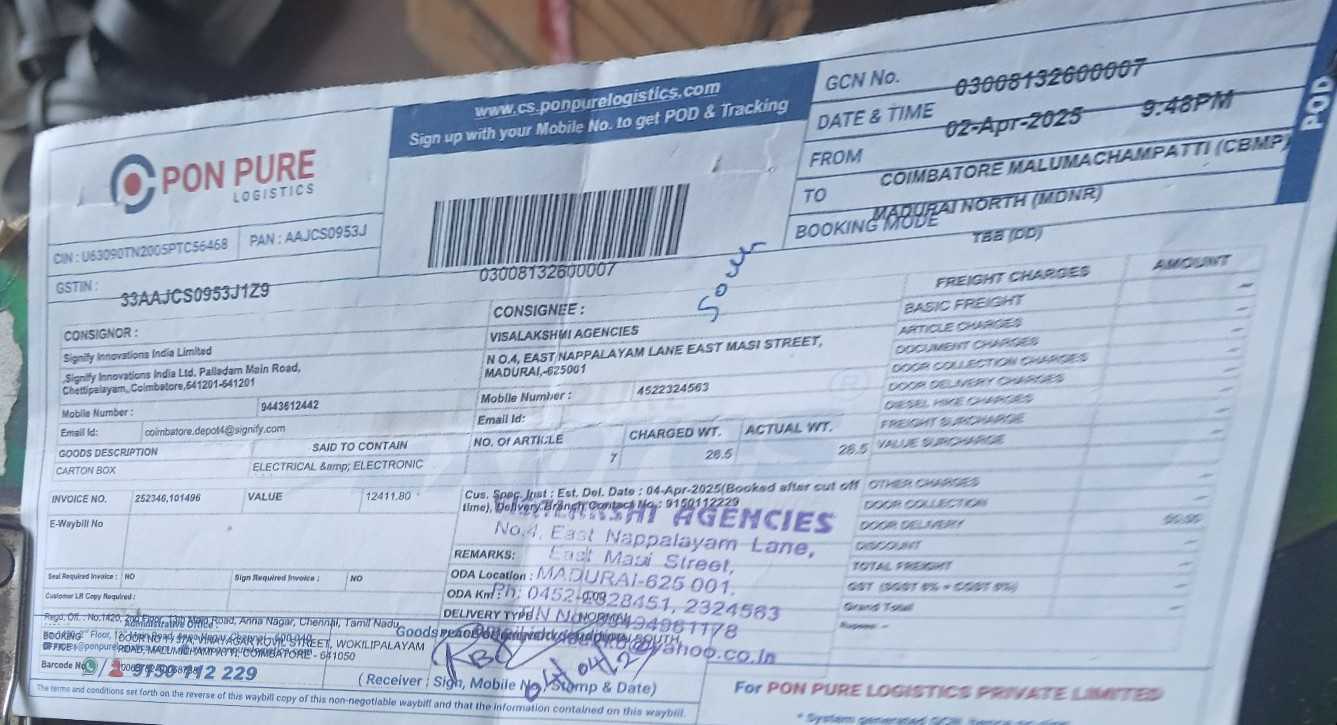 PON PURE
LOGISTICS
www.cs.ponpurelogistics.com
Sign up with your Mobile No. to get POD & Tracking
POD
GCN No. 03008132600007
DATE & TIME 02-Apr-2025 9:48PM
FROM COIMBATORE MALUMACHAMPATTI (CBMP)
TO MADURAI NORTH (MDNR)
BOOKING MODE TBB (DD)
CIN : U63090TN2005PTC56468 PAN : AAJCS0953J
GSTIN : 33AAJCS0953J1Z9
03008132600007
CONSIGNOR :
Signify Innovations India Limited
,Signify Innovations India Ltd. Palladam Main Road,
Chettipalayam, Coimbatore,641201-641201
Mobile Number : 9443612442
Email Id: coimbatore.depot4@signify.com
CONSIGNEE :
VISALAKSHMI AGENCIES
N O.4, EAST NAPPALAYAM LANE EAST MASI STREET,
MADURAI,-625001
Mobile Number : 4522324563
Email Id:
GOODS DESCRIPTION SAID TO CONTAIN NO. Of ARTICLE CHARGED WT. ACTUAL WT.
CARTON BOX ELECTRICAL &amp; ELECTRONIC 7 26.5 26.5
INVOICE NO. 252346,101496 VALUE 12411.80
E-Waybill No
Seal Required Invoice : NO Sign Required Invoice : NO
Customer LR Copy Required :
Cus. Spec. Inst : Est. Del. Date : 04-Apr-2025(Booked after cut off
time), Delivery Branch Contact No : 9150112229
REMARKS:
ODA Location :
ODA Km :
DELIVERY TYPE : NORMAL
AGENCIES
No.4, East Nappalayam Lane,
East Masi Street,
MADURAI-625 001.
Ph: 0452-2328451, 2324563
@yahoo.co.in
FREIGHT CHARGES AMOUNT
BASIC FREIGHT
ARTICLE CHARGES
DOCUMENT CHARGES
DOOR COLLECTION CHARGES
DOOR DELIVERY CHARGES
DIESEL HIKE CHARGES
FREIGHT SURCHARGE
VALUE SURCHARGE
OTHER CHARGES
DOOR COLLECTION
DOOR DELIVERY
DISCOUNT
TOTAL FREIGHT
Grand Total
Regd. Off. : No.1420, 2nd Floor, 13th Main Road, Anna Nagar, Chennai, Tamil Nadu
Administrative Office :
BOOKING
OFFICE
DOOR NO 1 / 37A, VINAYAGAR KOVIL STREET, WOKILIPALAYAM
ROAD, MALUMICHAMPATTI, COIMBATORE - 641050
Barcode No
9150 112 229
(Receiver : Sign, Mobile No, Stamp & Date)
The terms and conditions set forth on the reverse of this waybill copy of this non-negotiable waybill and that the information contained on this waybill.
For PON PURE LOGISTICS PRIVATE LIMITED